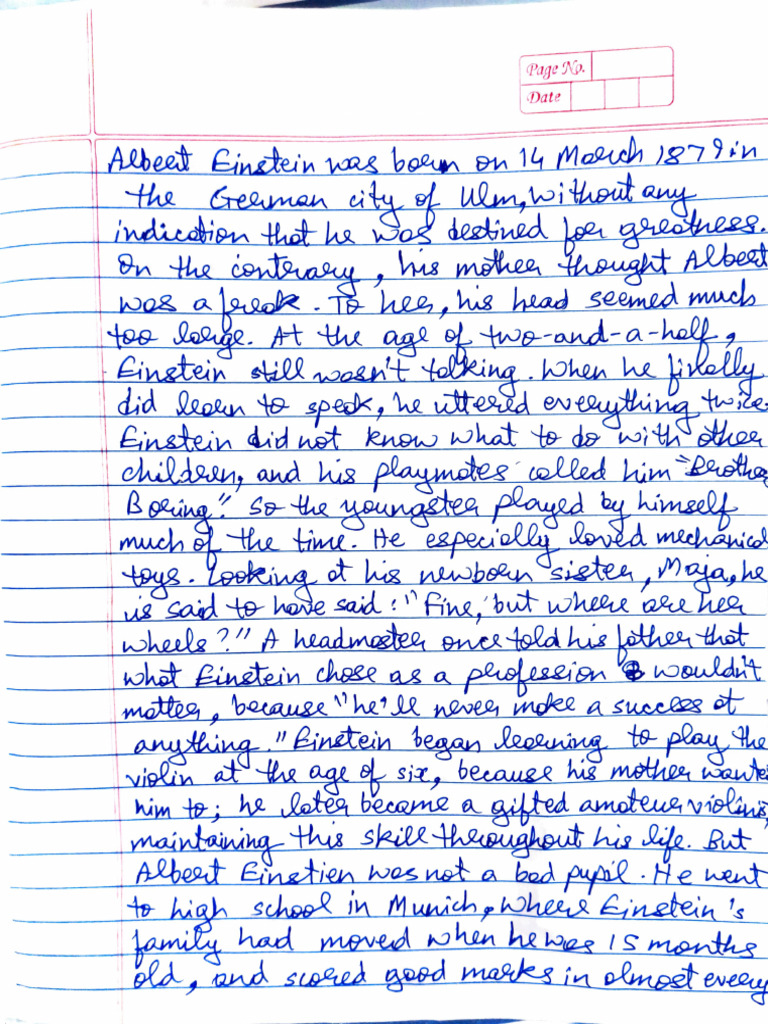 Page No.
Date
Albert Einstein was born on 14 March 1879 in
the German city of Ulm, without any
indication that he was destined for greatness.
On the contrary, his mother thought Albert
was a freak. To her, his head seemed much
too large. At the age of two-and-a-half,
Einstein still wasn't talking. When he finally
did learn to speak, he uttered everything twice.
Einstein did not know what to do with other
children, and his playmates called him "Brother
Boring." So the youngster played by himself
much of the time. He especially loved mechanical
toys. Looking at his newborn sister, Maja, he
is said to have said: "Fine, but where are her
wheels?" A headmaster once told his father that
what Einstein chose as a profession wouldn't
matter, because "he'll never make a success at
anything." Einstein began learning to play the
violin at the age of six, because his mother wante
him to; he later became a gifted amateur violinis
maintaining this skill throughout his life. But
Albert Einstien was not a bad pupil. He went
to high school in Munich, where Einstein's
family had moved when he was 15 months
old, and scored good marks in almost every